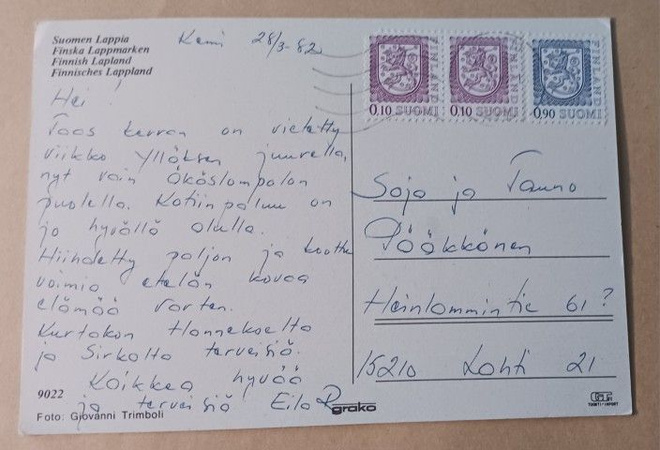 Suomen Lappia
Finska Lappmarken
Finnish Lapland
Finnisches Lappland
Kemi 28/3-82
Hei!
Taas kerran on vietetty
viikko Ylläksen juurella,
nyt vain Äkäslompolon
puolella. Kotiinpaluu on
jo hyvällä alulla.
Hiihdetty paljon ja koottu
voimia etelän kovaa
elämää varten.
Kurtakon Hannekselta
ja Sirkalta terveisiä.
Kaikkea hyvää
ja terveisiä Eila R
9022
Foto: Giovanni Trimboli
grako
0.10 SUOMI FINLAND
0.10 SUOMI FINLAND
0.90 SUOMI FINLAND
Soja ja Tauno
Pääkkönen
Heinlammintie 61?
15210 Lahti 21